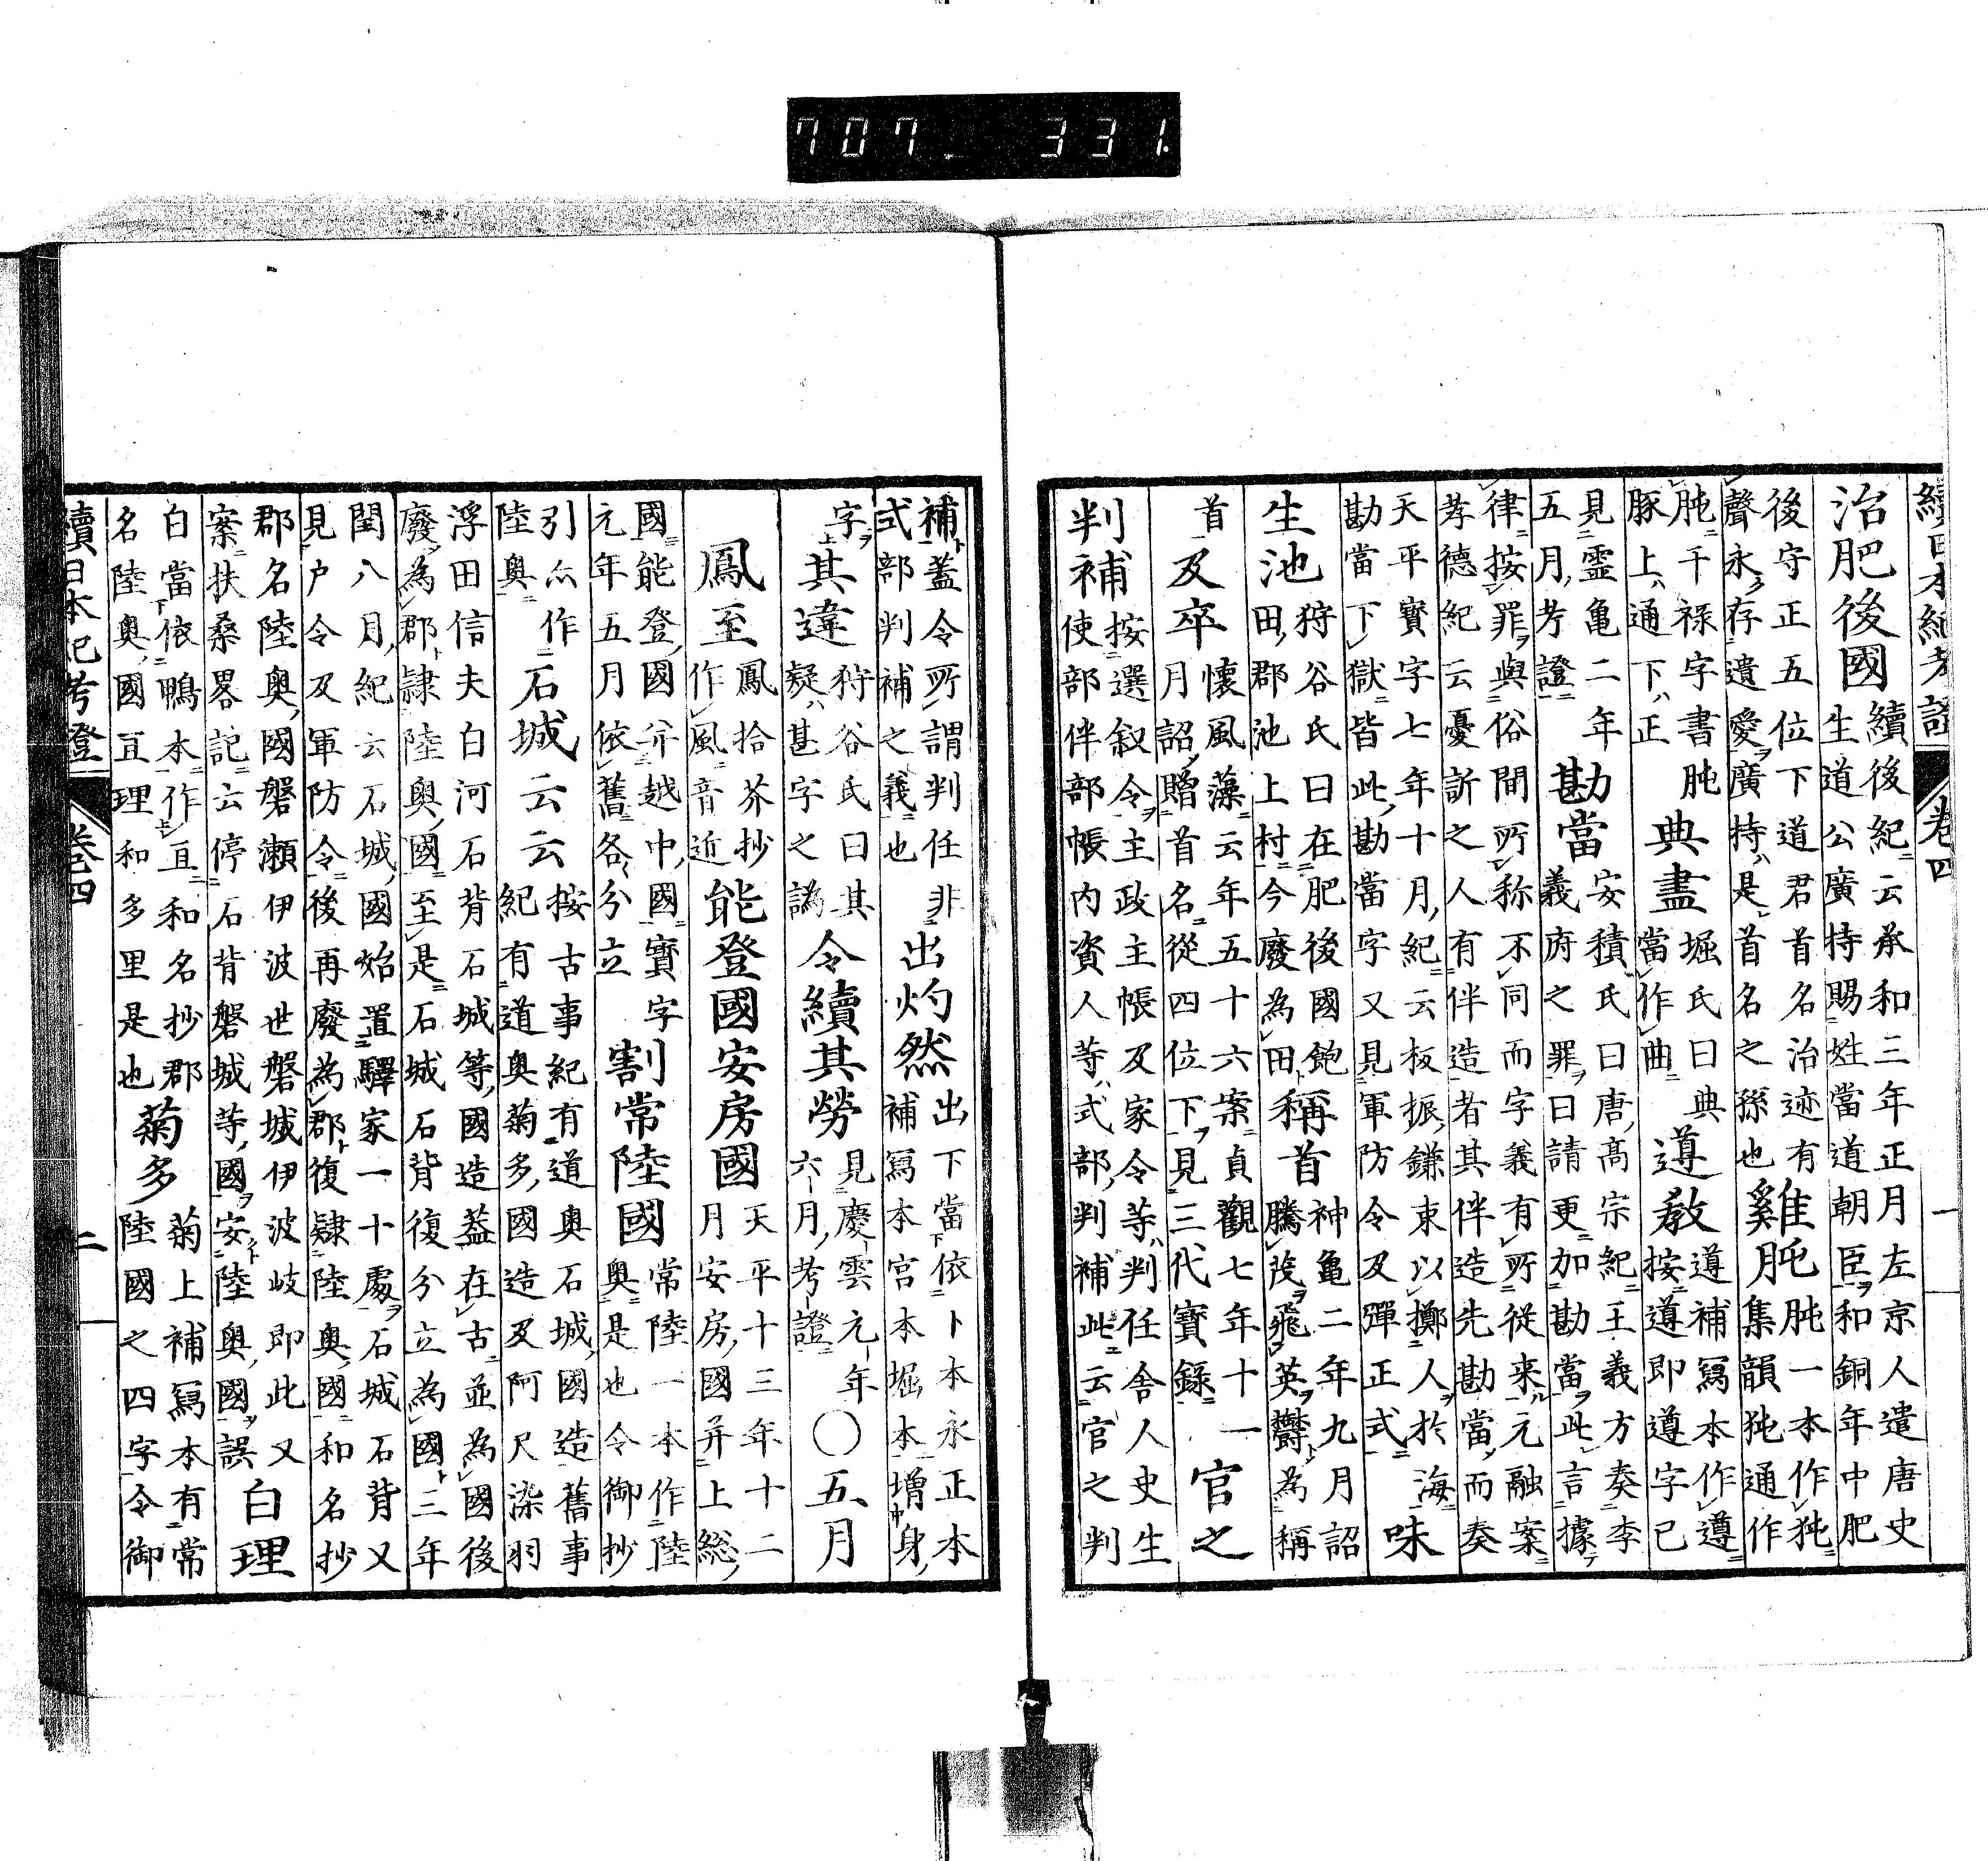 707 331
續日本紀考證 卷四 一
治肥後國 續後紀云承和三年正月左京人遣唐史
生道公廣持賜姓當道朝臣和銅年中肥
後守正五位下道君首名治迹有
聲永存遺愛廣持是首名之孫也 雞肫 肫一本作㹠
集韻㹠通作
肫千祿字書肫
豚上通下正 典盡 堀氏曰典
當作曲 遵教 遵補寫本作遵
按遵即遵字已
見霊亀二年
五月考證 勘當 安積氏曰唐高宗紀王義方奏李
義府之罪曰請更加勘當此言據
律按罪與俗間所称不同而字義有所從来元融案
孝德紀云憂訴之人有伴造者其伴造先勘當而奏
天平寶字七年十月紀云板振鎌束以擲人於海
勘當下獄皆此勘當字又見軍防令及彈正式 味
生池 狩谷氏曰在肥後國飽
田郡池上村今廢為田 稱首 神亀二年九月詔
騰茂飛英欝為稱
首 及卒 懷風藻云年五十六案貞觀七年十一
月詔贈首名從四位下見三代實錄 官之
判補 按選叙令主政主帳及家令等判任舎人史生
使部伴部帳內資人等式部判補此云官之判
補蓋令所謂判任非
式部判補之義也 出灼然 出下當依卜本永正本
補寫本宮本堀本增身
字 其違 狩谷氏曰其
疑甚字之譌 令續其勞 見慶雲元年
六月考證 〇五月
鳳至 鳳拾芥抄
作風音近 能登國安房國 天平十三年十二
月安房國并上総
國能登國并越中國寶字
元年五月依舊各分立 割常陸國 常陸一本作陸
奥是也令御抄
引亦作
陸奥 石城云云 按古事紀有道奥石城國造舊事
紀有道奥菊多國造及阿尺染羽
浮田信夫白河石背石城等國造蓋在古並為國後
廢為郡隷陸奥國至是石城石背復分立為國三年
閏八月紀云石城國始置驛家一十處石城石背又
見户令及軍防令後再廢為郡復隷陸奥國和名抄
郡名陸奥國磐瀬伊波世磐城伊波岐即此又
案扶桑畧記云停石背磐城等國安陸奥國誤 白理
白當依鴨本作亘和名抄郡
名陸奥國亘理和多里是也 菊多 菊上補寫本有常
陸國之四字令御
續日本紀考證 卷四 二